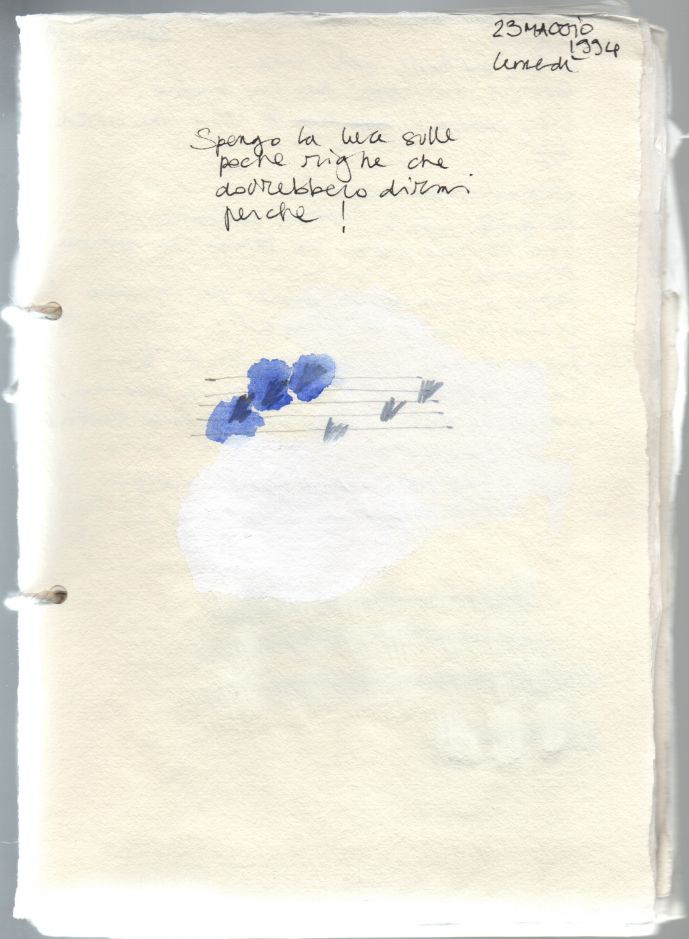 23 MAGGIO
1994
lunedì
Spengo la luce sulle
poche righe che
dovrebbero dirmi
perche !